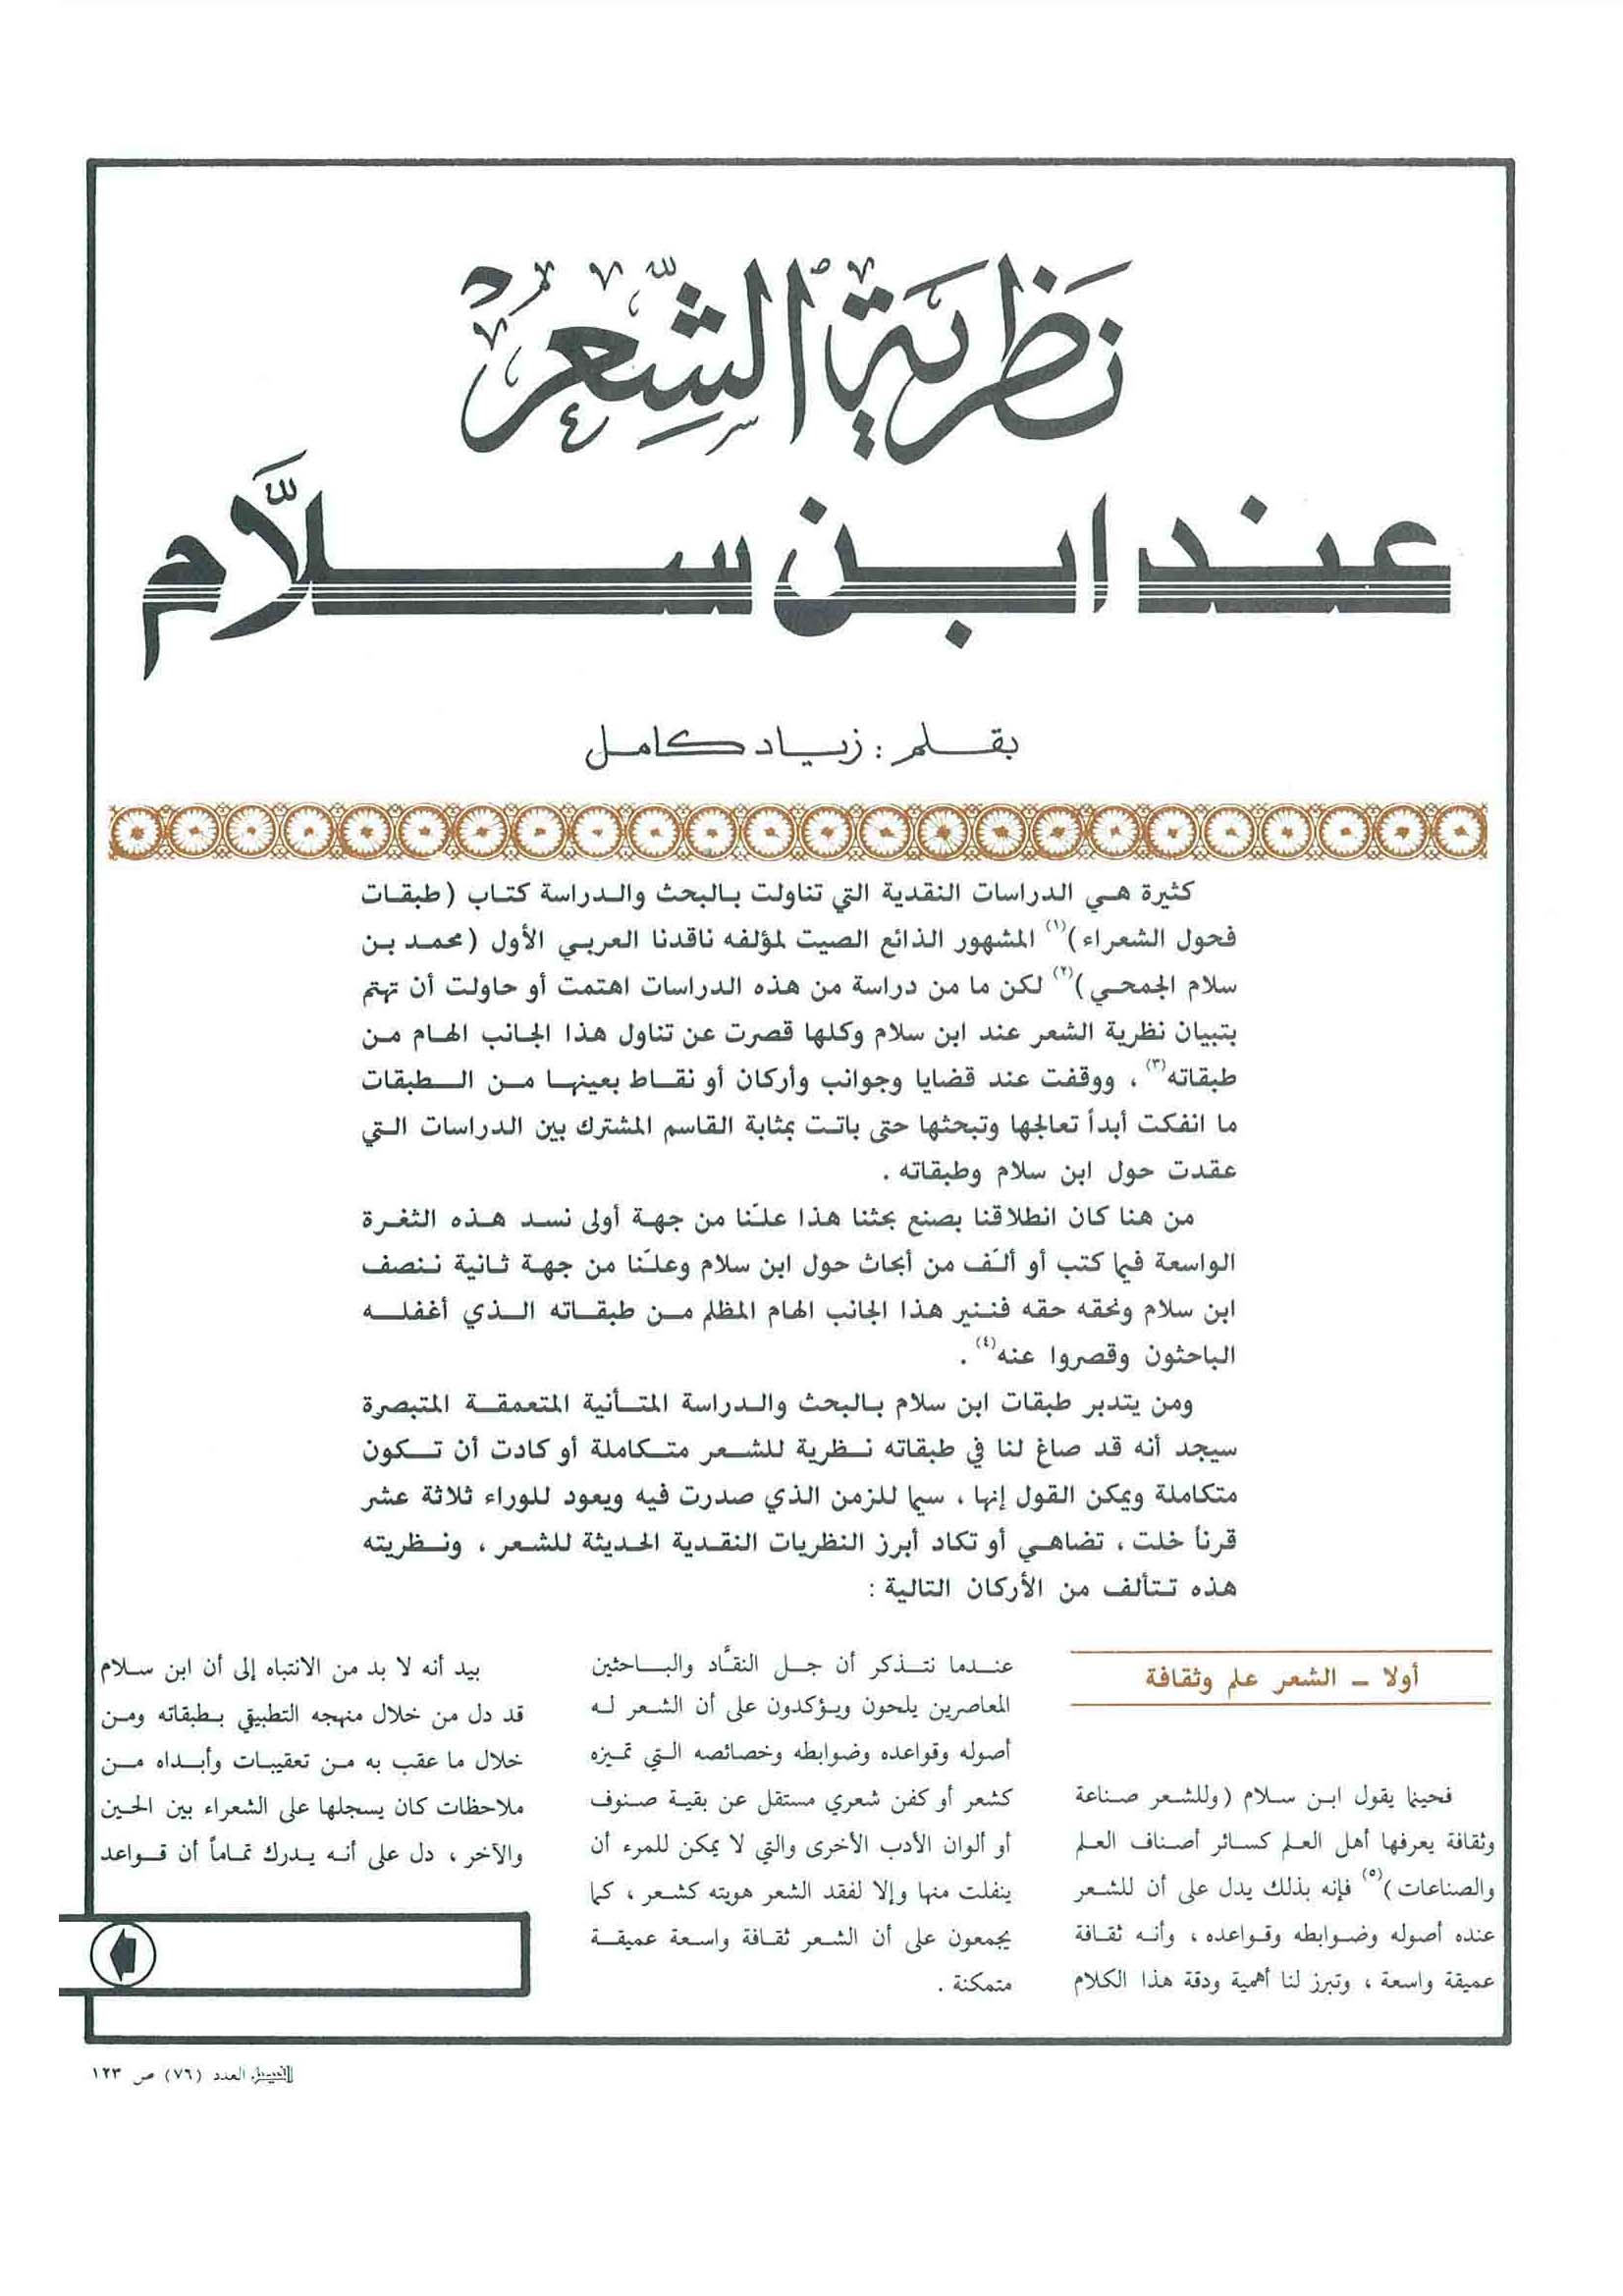 نظرية الشعر
عند ابن سلام
بقلم : زياد كامل
كثيرة هي الدراسات النقدية التي تناولت بالبحث والدراسة كتاب (طبقات
فحول الشعراء)(١) المشهور الذائع الصيت لمؤلفه ناقدنا العربي الأول (محمد بن
سلام الجمحي)(٢) لكن ما من دراسة من هذه الدراسات اهتمت أو حاولت أن تهتم
بتبيان نظرية الشعر عند ابن سلام وكلها قصرت عن تناول هذا الجانب الهام من
طبقاته(٣) ، ووقفت عند قضايا وجوانب وأركان أو نقاط بعينها من الطبقات
ما انفكت أبداً تعالجها وتبحثها حتى باتت بمثابة القاسم المشترك بين الدراسات التي
عقدت حول ابن سلام وطبقاته .
من هنا كان انطلاقنا بصنع بحثنا هذا علّنا من جهة أولى نسد هذه الثغرة
الواسعة فيما كتب أو ألّف من أبحاث حول ابن سلام وعلّنا من جهة ثانية ننصف
ابن سلام ونحقه حقه فننير هذا الجانب الهام المظلم من طبقاته الذي أغفله
الباحثون وقصروا عنه(٤) .
ومن يتدبر طبقات ابن سلام بالبحث والدراسة المتأنية المتعمقة المتبصرة
سيجد أنه قد صاغ لنا في طبقاته نظرية للشعر متكاملة أو كادت أن تكون
متكاملة ويمكن القول إنها ، سيما للزمن الذي صدرت فيه ويعود للوراء ثلاثة عشر
قرناً خلت ، تضاهي أو تكاد أبرز النظريات النقدية الحديثة للشعر ، ونظريته
هذه تتألف من الأركان التالية :
أولا – الشعر علم وثقافة
فحينما يقول ابن سلام (وللشعر صناعة
وثقافة يعرفها أهل العلم كسائر أصناف العلم
والصناعات)(٥) فإنه بذلك يدل على أن للشعر
عنده أصوله وضوابطه وقواعده ، وأنه ثقافة
عميقة واسعة ، وتبرز لنا أهمية ودقة هذا الكلام
عندما نتذكر أن جل النقّاد والباحثين
المعاصرين يلحون ويؤكدون على أن الشعر له
أصوله وقواعده وضوابطه وخصائصه التي تميزه
كشعر أو كفن شعري مستقل عن بقية صنوف
أو ألوان الأدب الأخرى والتي لا يمكن للمرء أن
ينفلت منها وإلا لفقد الشعر هويته كشعر ، كما
يجمعون على أن الشعر ثقافة واسعة عميقة
متمكنة .
بيد أنه لا بد من الانتباه إلى أن ابن سلام
قد دل من خلال منهجه التطبيقي بطبقاته ومن
خلال ما عقب به من تعقيبات وأبداه من
ملاحظات كان يسجلها على الشعراء بين الحين
والآخر ، دل على أنه يدرك تماماً أن قواعد
الفيصل العدد (٧٦) ص ١٢٣